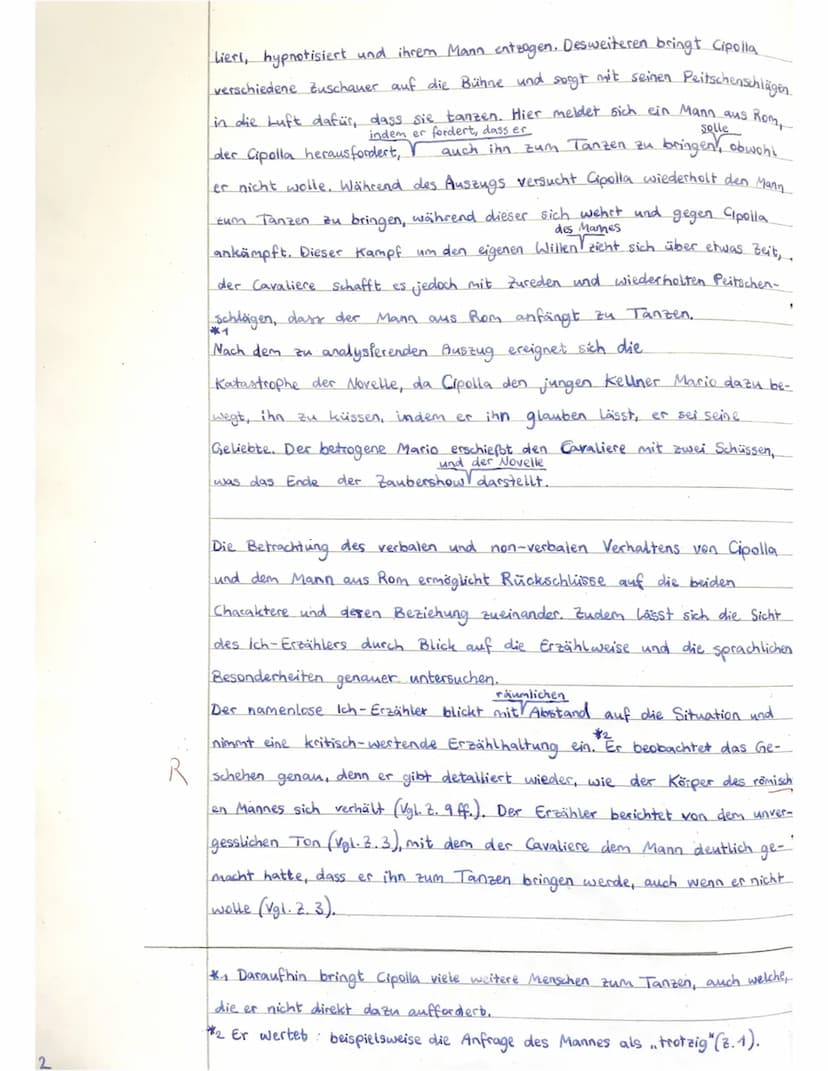 liert, hypnotisiert und ihrem Mann entzogen. Desweiteren bringt Cipolla
verschiedene Zuschauer auf die Bühne und sorgt mit seinen Peitschenschlägen
in die Luft dafür, dass sie tanzen. Hier meldet sich ein Mann aus Rom,
indem er fordert, dass er solle
der Cipolla herausfordert, auch ihn zum Tanzen zu bringen, obwohl
er nicht wolle. Während des Auszugs versucht Cipolla wiederholt den Mann
zum Tanzen zu bringen, während dieser sich wehrt und gegen Cipolla
des Mannes
ankämpft. Dieser Kampf um den eigenen Willen zieht sich über etwas Zeit,
der Cavaliere schafft es jedoch mit Zureden und wiederholten Peitschen-
schlägen, dass der Mann aus Rom anfängt zu Tanzen.
*1
Nach dem zu analysierenden Auszug ereignet sich die
Katastrophe der Novelle, da Cipolla den jungen Kellner Mario dazu be-
wegt, ihn zu küssen, indem er ihn glauben lässt, er sei seine
Geliebte. Der betrogene Mario erschießt den Cavaliere mit zwei Schüssen,
und der Novelle
was das Ende der Zaubershow darstellt.
Die Betrachtung des verbalen und non-verbalen Verhaltens von Cipolla
und dem Mann aus Rom ermöglicht Rückschlüsse auf die beiden
Charaktere und deren Beziehung zueinander. Zudem lässt sich die Sicht
des Ich-Erzählers durch Blick auf die Erzählweise und die sprachlichen
Besonderheiten genauer untersuchen.
räumlichen
Der namenlose Ich-Erzähler blickt mit Abstand auf die Situation und
*2
nimmt eine kritisch-wertende Erzählhaltung ein. Er beobachtet das Ge-
R schehen genau, denn er gibt detailliert wieder, wie der Körper des römisch
en Mannes sich verhält (Vgl. Z. 9 ff.). Der Erzähler berichtet von dem unver-
gesslichen Ton (Vgl. Z. 3), mit dem der Cavaliere dem Mann deutlich ge-
macht hatte, dass er ihn zum Tanzen bringen werde, auch wenn er nicht
wolle (Vgl. Z. 3).
*1 Daraufhin bringt Cipolla viele weitere Menschen zum Tanzen, auch welche,
die er nicht direkt dazu auffordert.
*2 Er wertet: beispielsweise die Anfrage des Mannes als „trotzig" (Z. 1).
2